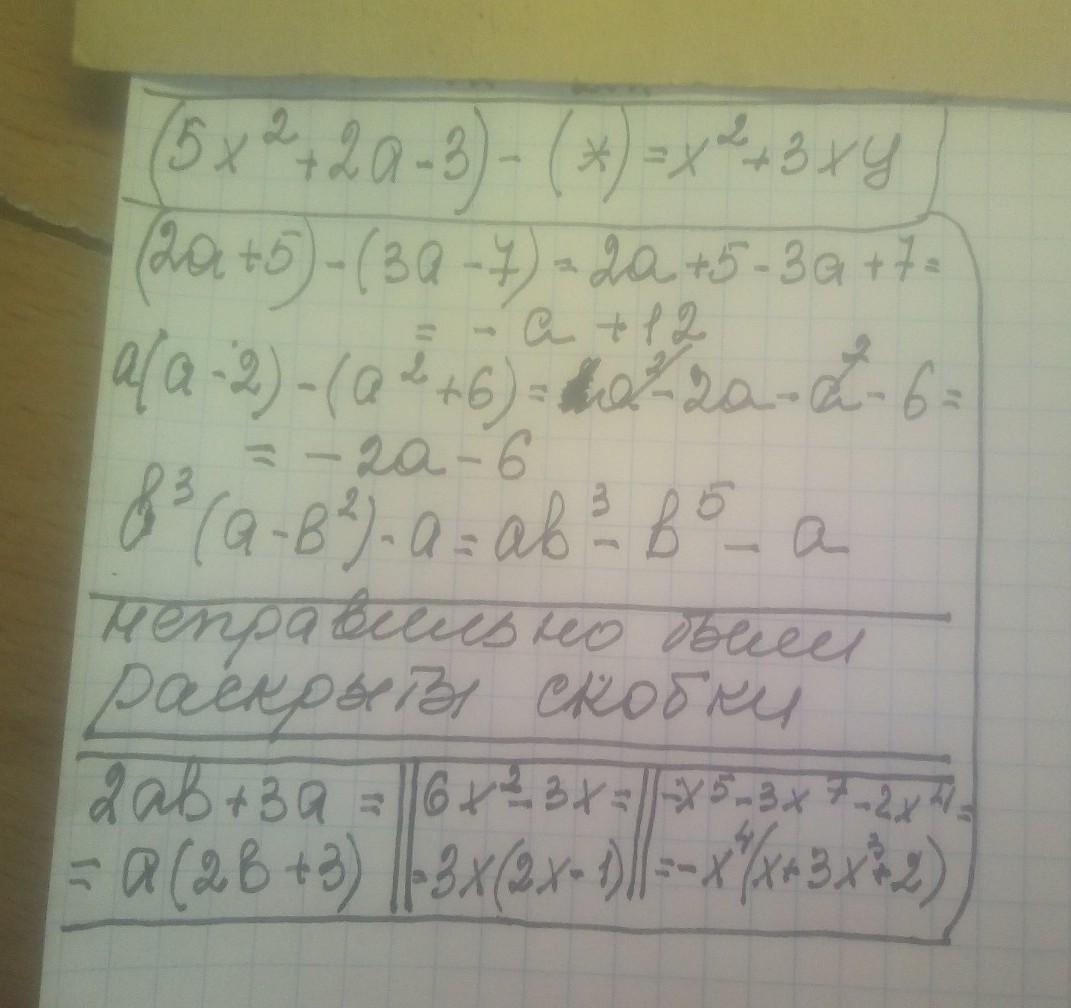 (5x²+2a-3)-(*)=x²+3xy
(2a+5)-(3a-7)=2a+5-3a+7=
= -a+12
a(a-2)-(a²+6)=a²-2a-a²-6=
= -2a-6
b³(a-b²)-a=ab³-b⁵-a
неправильно были
раскрыты скобки
2ab+3a = || 6x²-3x= || -x⁵-3x⁷-2x⁴=
= a(2b+3) || =3x(2x-1) || =-x⁴(x+3x³+2)